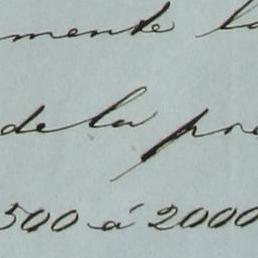 mente la
de la pre
500 á 2000